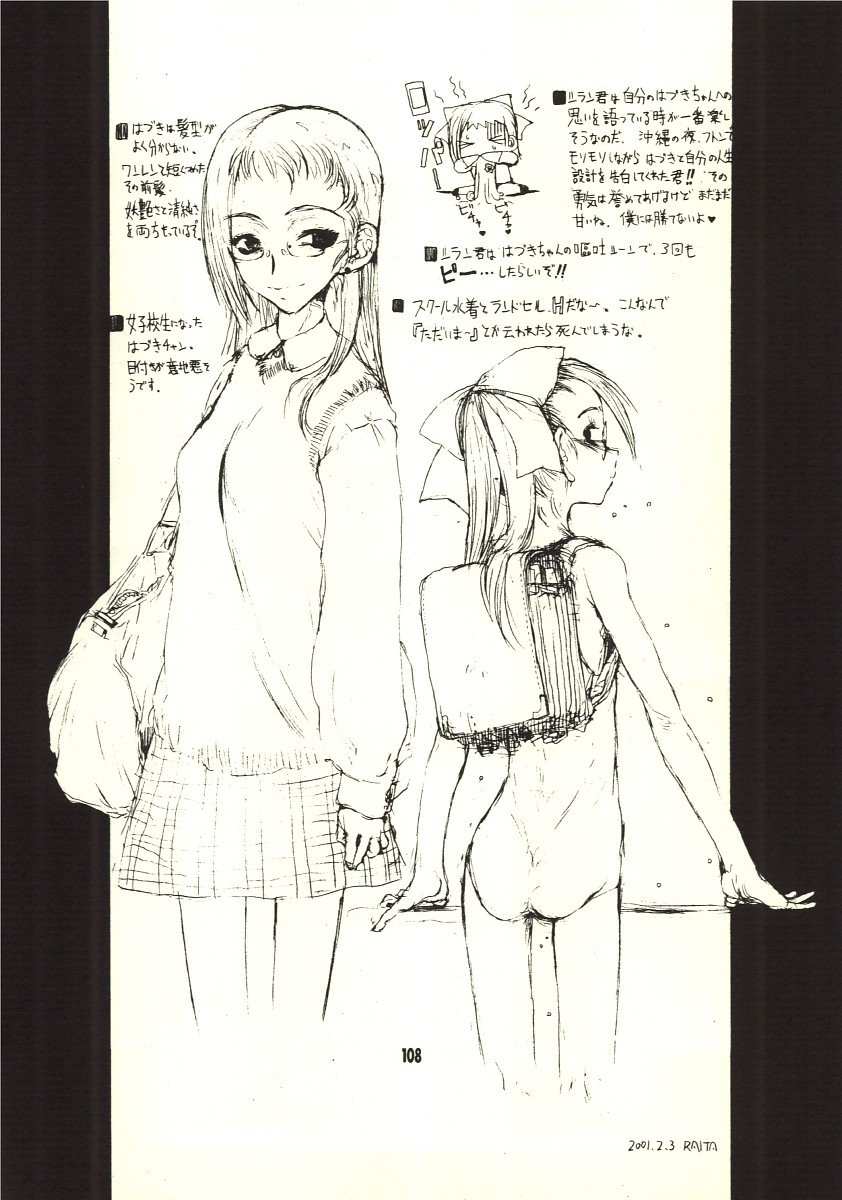 はづきは髪型が
よく分からない。
ワンレンと短くつめた
その前髪。
妖艶さと清純さ
を両方もっているぞ。
女子校生になった
はづきチャン。
目付きが意地悪そ
うです。
ニラン君は自分のはづきちゃんへの
思いを語っている時が一番楽し
そうなのだ。沖縄の夜、フトンで
モリモリしながら はづきと自分の人生
設計を告白してくれた君!! その
勇気は誉めてあげるけど まだまだ
甘いね。僕には勝てないよ♥
ビチャ♥
ビチャ♥
ニラン君は はづきちゃんの嘔吐シーンで、3回も
ピー…したらしいぞ!!
スクール水着とランドセル、Hだな〜。こんなんで
『ただいま〜』とか云われたら死んでしまうな。
108
2001.2.3 RAITA